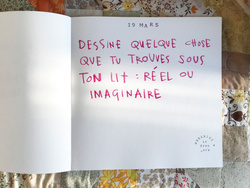 10 MARS
DESSINE QUELQUE CHOSE
QUE TU TROUVES SOUS
TON LIT : RÉEL OU
IMAGINAIRE